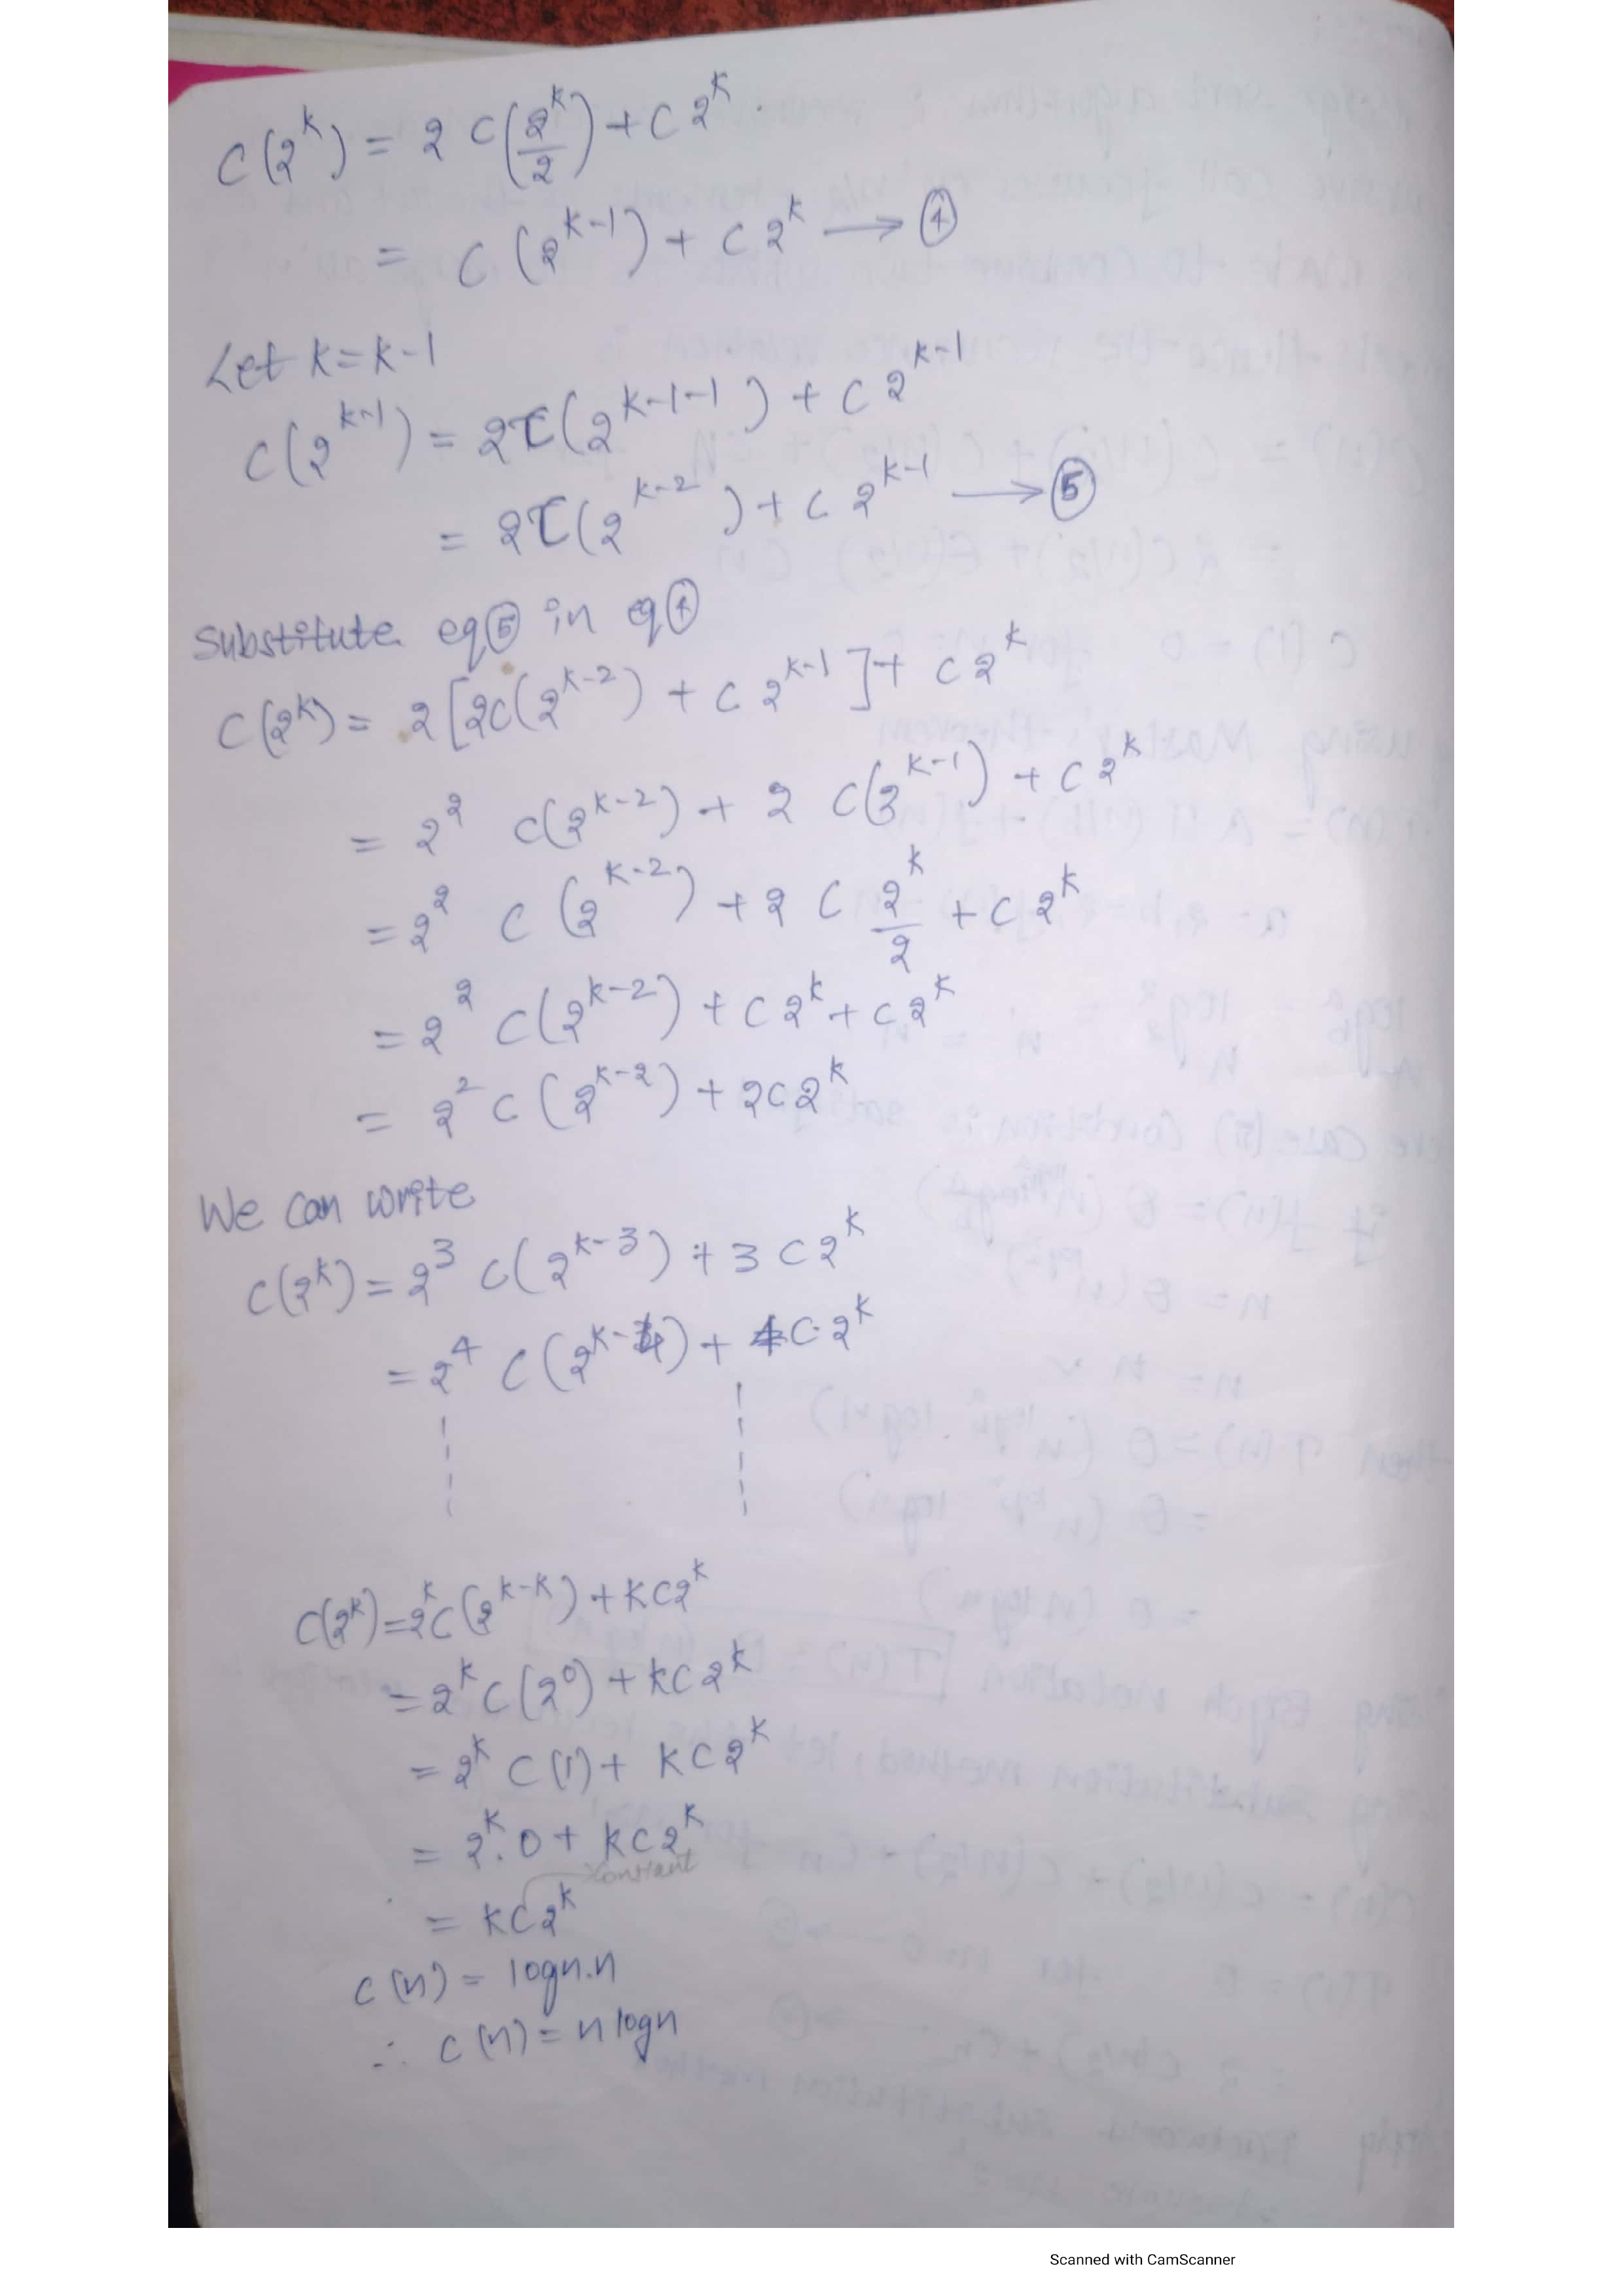 C(2^k) = 2 C(2^k/2) + C 2^k.
= C (2^k-1) + C 2^k → ④
Let k=k-1
C(2^k-1) = 2C(2^k-1-1) + C 2^k-1
= 2C(2^k-2) + C 2^k-1 → ⑤
Substitute eq⑤ in eq④
C(2^k) = 2[2C(2^k-2) + C 2^k-1] + C 2^k
= 2^2 C(2^k-2) + 2 C(2^k-1) + C 2^k
= 2^2 C (2^k-2) + 2 C 2^k/2 + C 2^k
= 2^2 C(2^k-2) + C 2^k + C 2^k
= 2^2 C (2^k-2) + 2C2^k
We can write
C(2^k) = 2^3 C(2^k-3) + 3 C2^k
= 2^4 C(2^k-4) + 4C.2^k
C(2^k) = 2^k C(2^k-k) + kC2^k
= 2^k C(2^0) + kC2^k
= 2^k C(1) + kC2^k
= 2^k.0 + kC2^k
constant
= kC2^k
C(n) = logn.n
∴ C(n) = n logn
Scanned with CamScanner